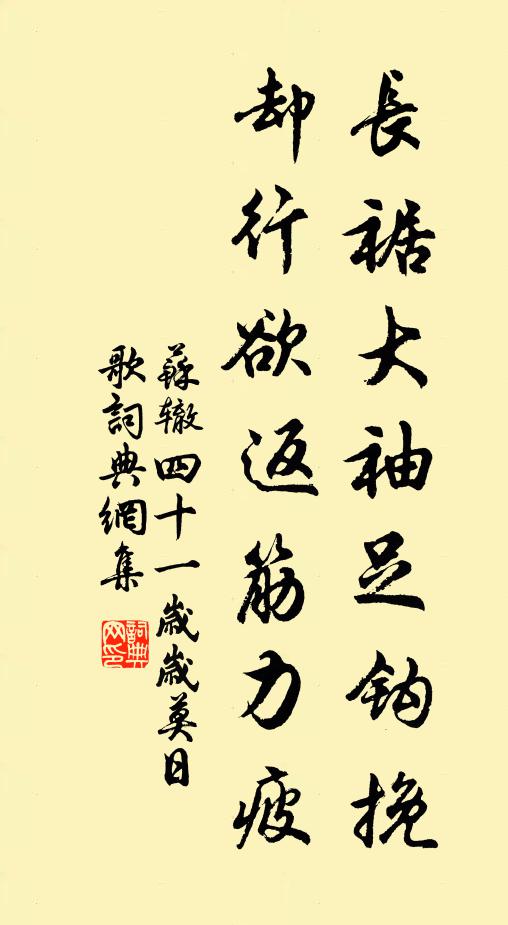 長裾大袖足鈎挽
却行欲返筋力疲
蘇辙四十一歲歲莫日
歌詞典網集
詞典网印